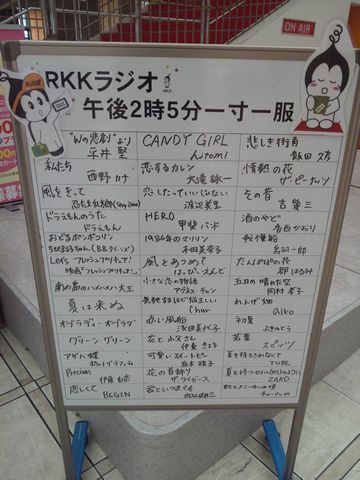 ON AIR
RKKラジオ
午後2時5分一寸一服
"Wの悲劇"より
平井堅
私たち
西野カナ
風をきって
ドラえもんのうた
ドラえもん
おどるポンポコリン
ちびまる子ちゃん (B.B.クィーンズ)
Let's フレッシュプリキュア!
映画「フレッシュプリキュア!」
南の島のハメハメハ大王
夏は来ぬ
オブラディ・オブラダ
グリーングリーン
アゲハ蝶
ポルノグラフィティ
Precious
伊藤由奈
恋しくて
BEGIN
CANDY GIRL
hitomi
恋するカレン
大滝詠一
恋したっていいじゃない
渡辺美里
HERO
甲斐バンド
1986年のマリリン
本田美奈子
風をあつめて
はっぴいえんど
小さな恋の物語
アグネス・チャン
気絶するほど悩ましい
Char
赤い風船
浅田美代子
花と小父さん
伊東きよ子
可愛いスイートピー
花の首飾り
ザ・タイガース
君といつまでも
加山雄三
悲しき街角
飯田久彦
情熱の花
ザ・ピーナッツ
その昔
吉幾三
酒のやど
香西かおり
我愛船
鳥羽一郎
たんぽぽの花
都はるみ
五月の晴れた空
岡村孝子
れんげ畑
Chiko
初夏
ふきのとう
若葉
スピッツ
夏を待ちきれなくて
TUBE
夏を待つセイル(帆)のように
ZARD
虹とスニーカーの頃
チューリップ